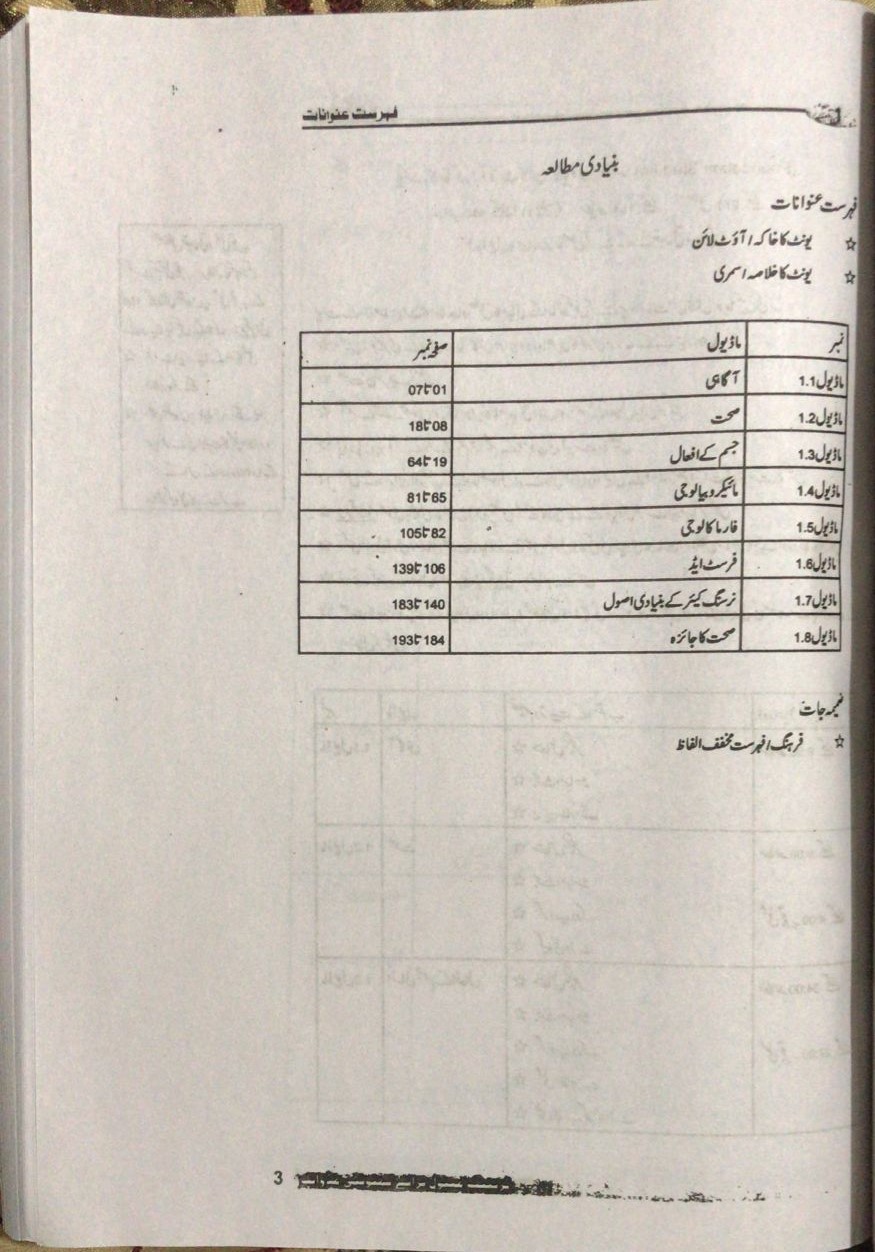 فہرست عنوانات
بنیادی مطالعہ
فہرست عنوانات
☆ یونٹ کا خاکہ / آؤٹ لائن
☆ یونٹ کا خلاصہ / سمری
نمبر ماڈیول صفحہ نمبر
ماڈیول 1.1 آگاہی 01 تا 07
ماڈیول 1.2 صحت 08 تا 18
ماڈیول 1.3 جسم کے افعال 19 تا 64
ماڈیول 1.4 مائیکروبیالوجی 65 تا 81
ماڈیول 1.5 فارماکالوجی 82 تا 105
ماڈیول 1.6 فرسٹ ایڈ 106 تا 139
ماڈیول 1.7 نرسنگ کیئر کے بنیادی اصول 140 تا 183
ماڈیول 1.8 صحت کا جائزہ 184 تا 193
ضمیمہ جات
☆ فرہنگ / فہرست مخفف الفاظ
3